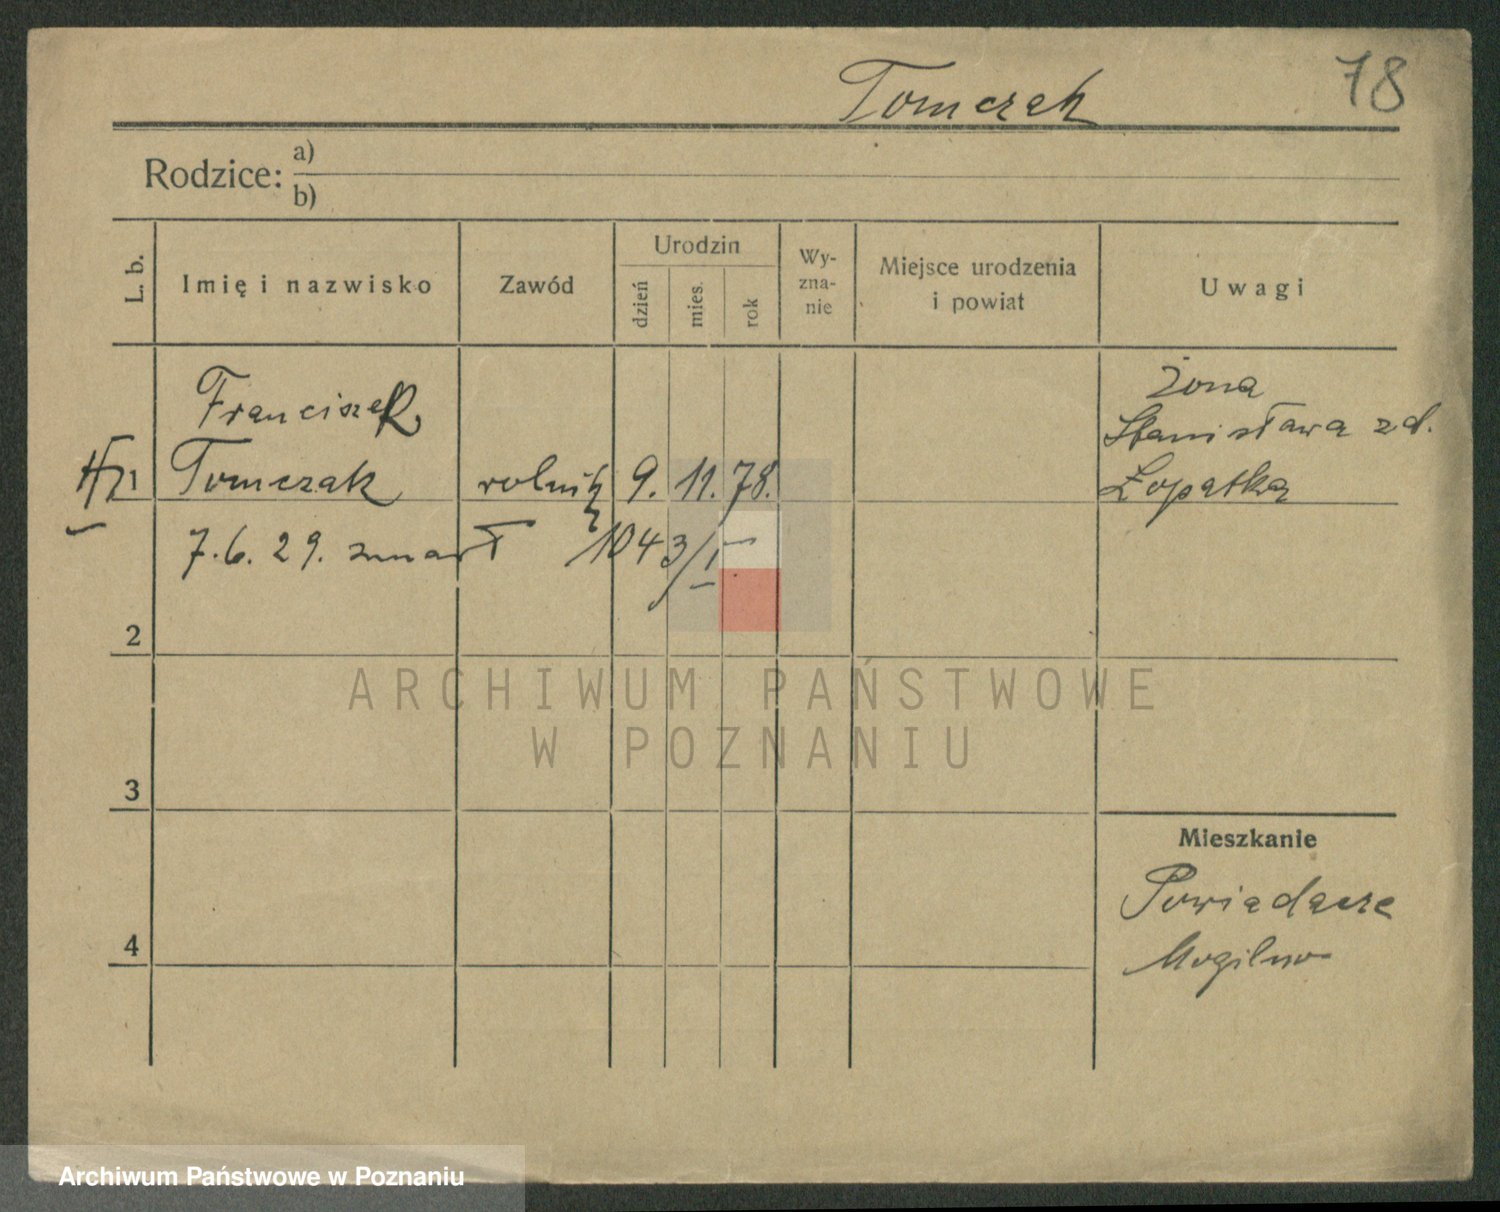 Tomczak
78
Rodzice: a)
b)
L. b.
Imię i nazwisko
Zawód
Urodzin
dzień
mies.
rok
Wy-
zna-
nie
Miejsce urodzenia
i powiat
Uwagi
Franciszek
1 Tomczak rolnik 9. 11. 78.
7. 6. 29. zmarł 1043/I
żona
Stanisława z d.
Łopatka
2
3
4
Mieszkanie
Powiadacze
Mogilno
ARCHIWUM PAŃSTWOWE
W POZNANIU
Archiwum Państwowe w Poznaniu